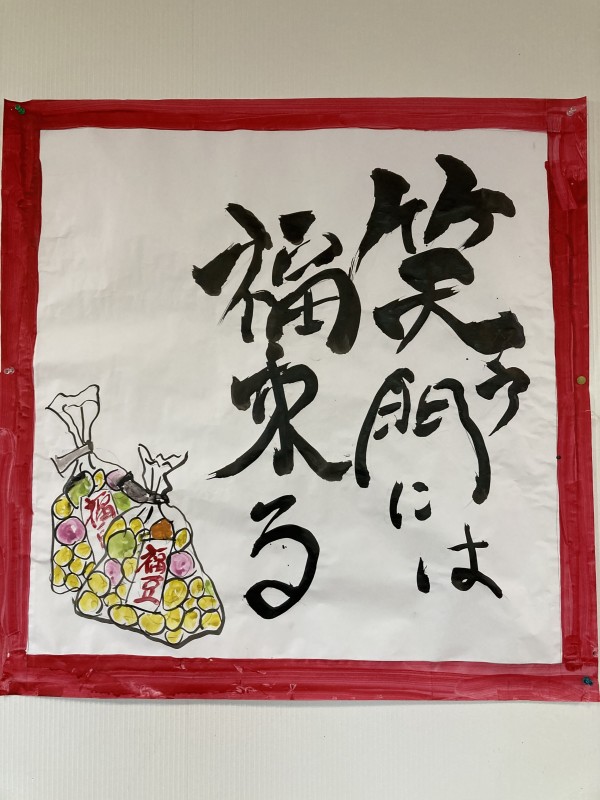 笑う門には
福来る
福豆
福